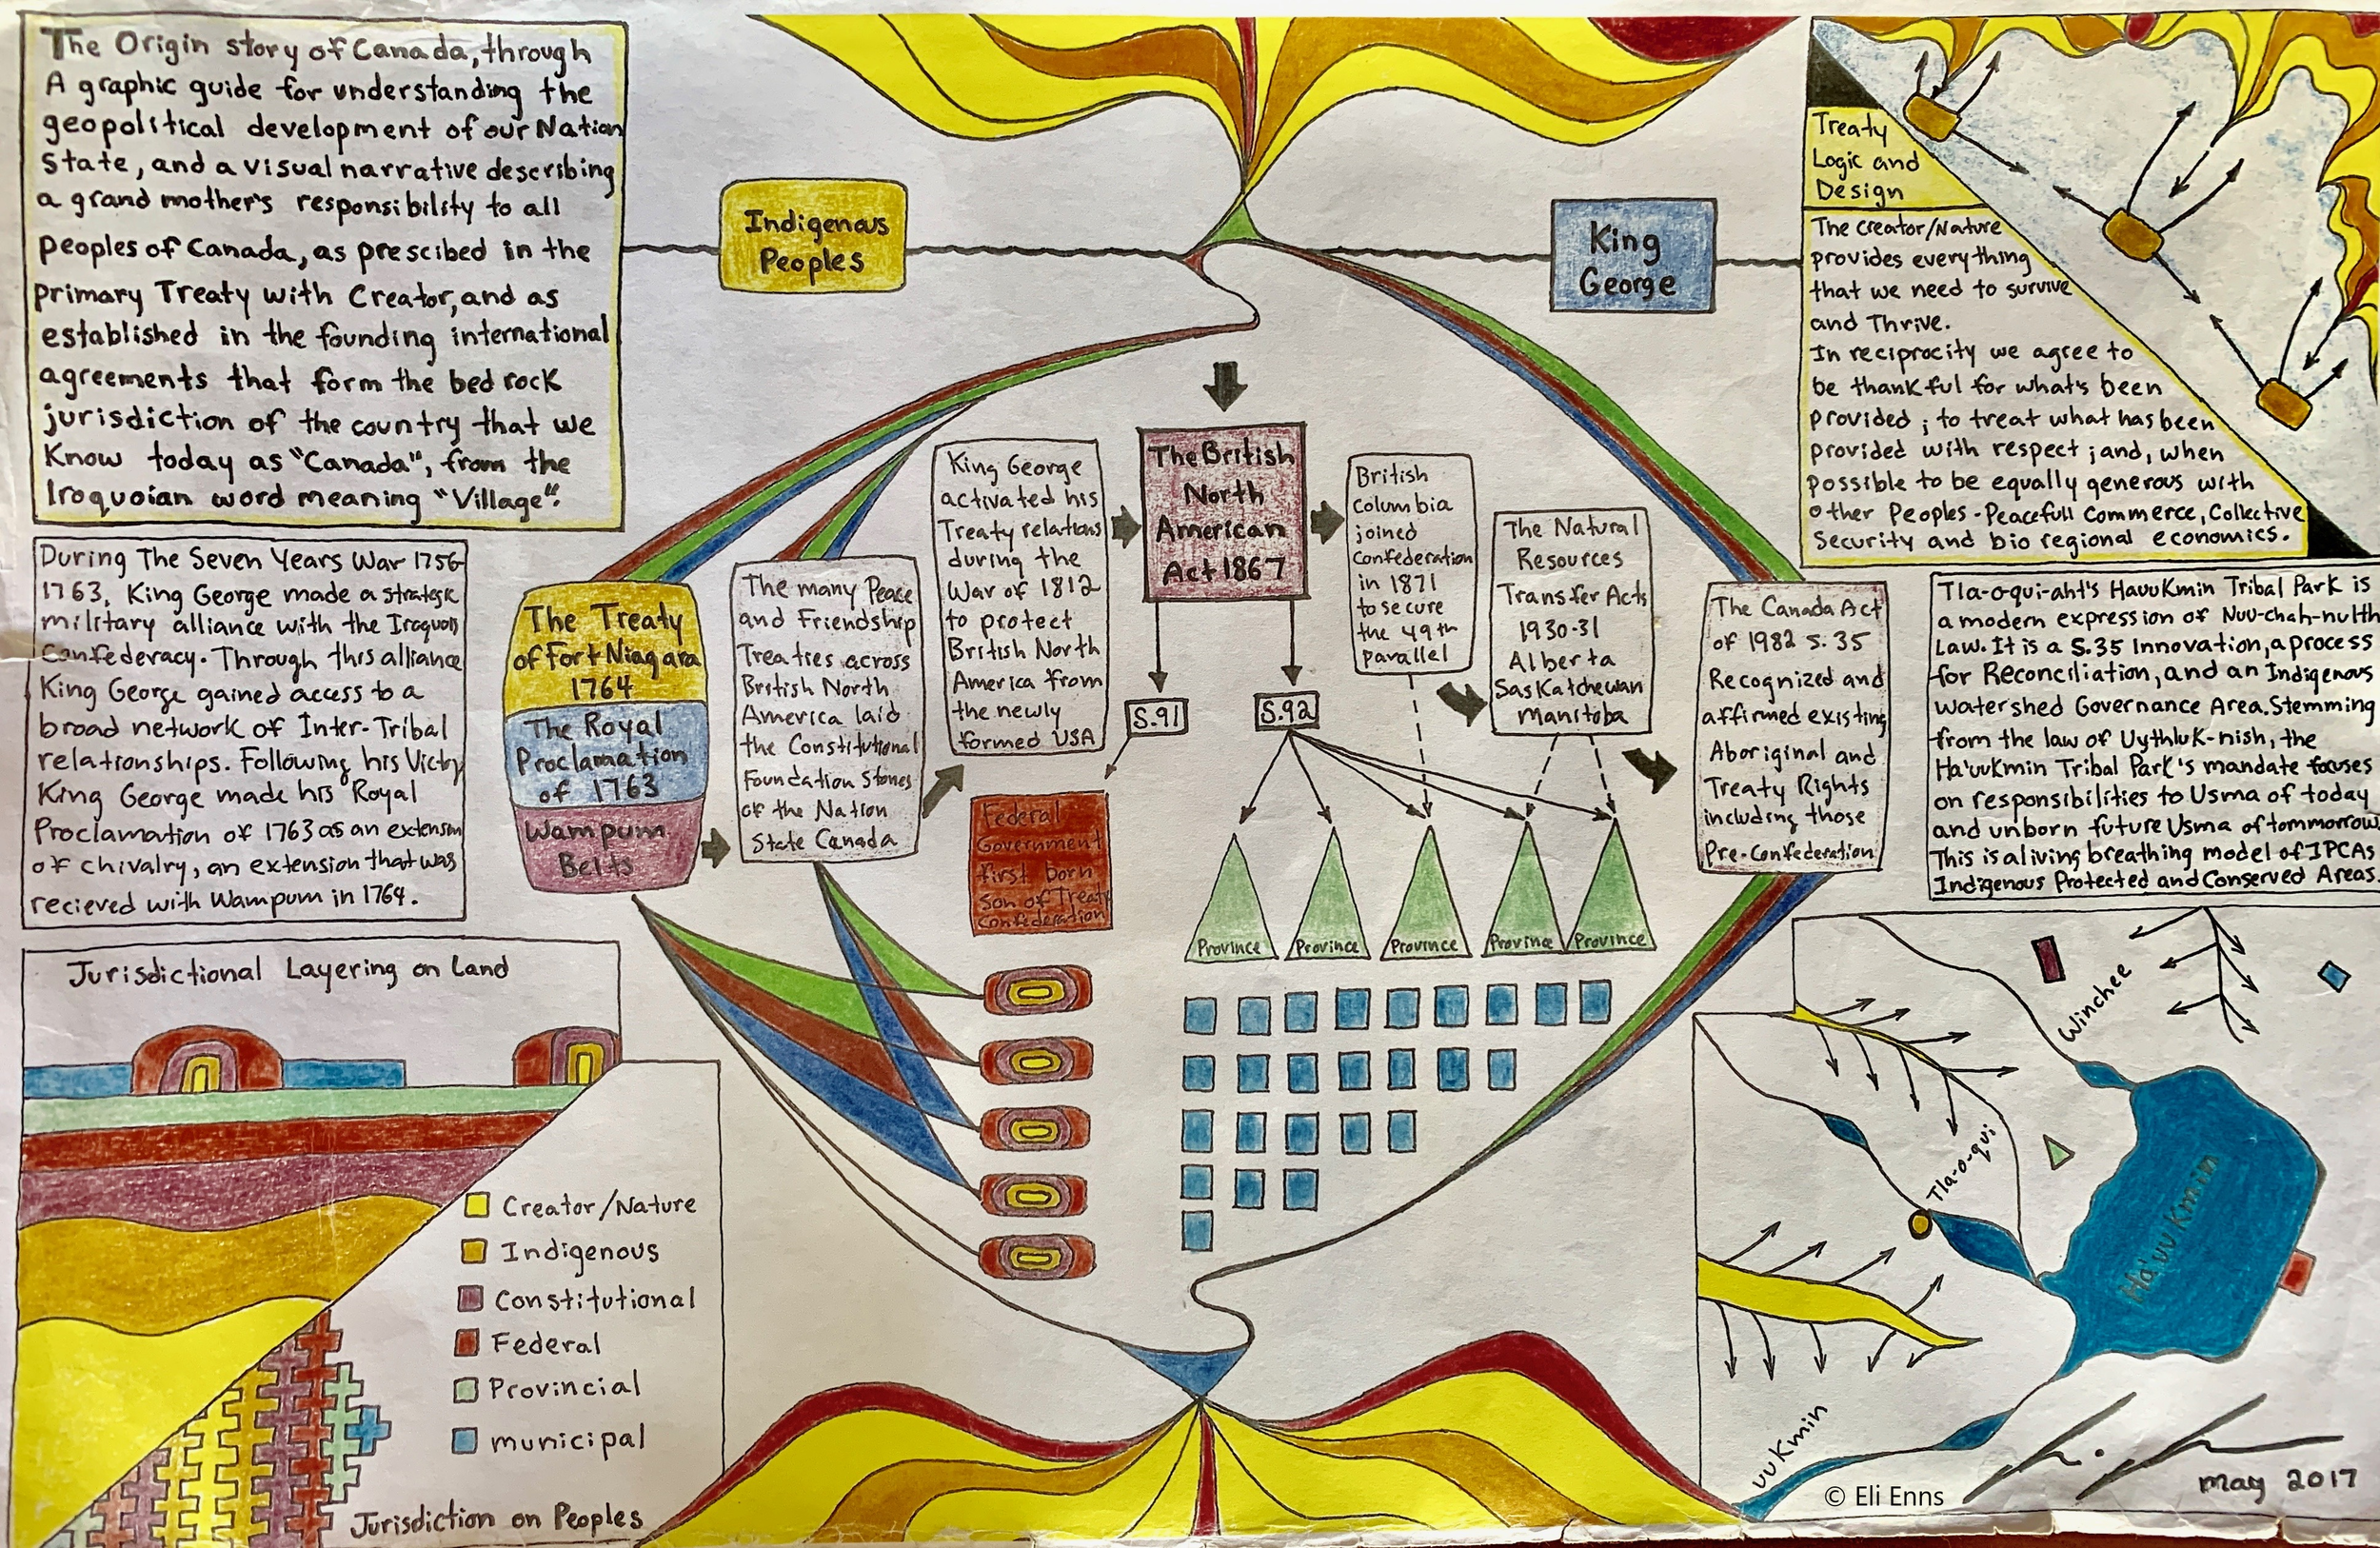 The Origin story of Canada, through
A graphic guide for understanding the
geopolitical development of our Nation
State, and a visual narrative describing
a grand mother's responsibility to all
peoples of Canada, as prescibed in the
primary Treaty with Creator, and as
established in the founding international
agreements that form the bed rock
jurisdiction of the country that we
Know today as "Canada", from the
Iroquoian word meaning "Village".
During The Seven Years War 1756-
1763, King George made a strategic
military alliance with the Iroquois
Confederacy. Through this alliance
King George gained access to a
broad network of Inter-Tribal
relationships. Following his Victory
King George made his Royal
Proclamation of 1763 as an extension
of chivalry, an extension that was
recieved with Wampum in 1764.
Indigenous
Peoples
King
George
Treaty
Logic and
Design
The Creator/Nature
provides everything
that we need to survive
and Thrive.
In reciprocity we agree to
be thankful for what's been
provided; to treat what has been
provided with respect; and, when
possible to be equally generous with
other Peoples - Peacefull Commerce, Collective
Security and bio regional economics.
The Treaty
of Fort Niagara
1764
The Royal
Proclamation
of 1763
Wampum
Belts
The many Peace
and Friendship
Treaties across
British North
America laid
the Constitutional
Foundation Stones
of the Nation
State Canada
King George
activated his
Treaty relations
during the
War of 1812
to protect
British North
America from
the newly
formed USA
The British
North
American
Act 1867
S.91
S.92
British
Columbia
joined
Confederation
in 1871
to secure
the 49th
parallel
The Natural
Resources
Transfer Acts
1930-31
Alberta
Saskatchewan
Manitoba
The Canada Act
of 1982 s.35
Recognized and
affirmed existing
Aboriginal and
Treaty Rights
including those
Pre-Confederation
Tla-o-qui-aht's HauuKmin Tribal Park is
a modern expression of Nuu-chah-nulth
Law. It is a S.35 Innovation, a process
for Reconciliation, and an Indigenous
Watershed Governance Area. Stemming
from the law of Uythluk-nish, the
Ha'uukmin Tribal Park's mandate focuses
on responsibilities to Usma of today
and unborn future Usma of tommorrow.
This is a living breathing model of IPCAs
Indigenous Protected and Conserved Areas.
Federal
Government
first born
Son of Treaty
Confederation
Province
Province
Province
Province
Province
Jurisdictional Layering on Land
Creator/Nature
Indigenous
Constitutional
Federal
Provincial
municipal
Jurisdiction on Peoples
Winchee
Tla-o-qui
Ha'uuKmin
uuKmin
© Eli Enns
may 2017